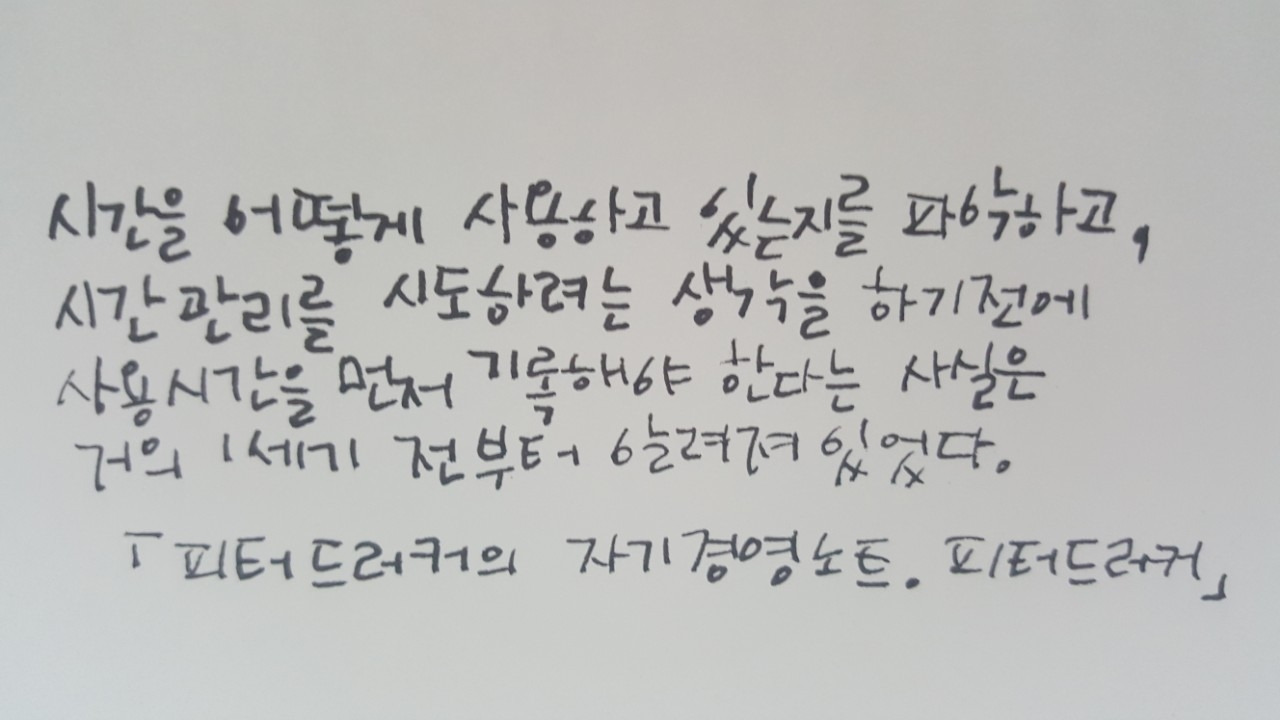 시간을 어떻게 사용하고 있는지를 파악하고,
시간관리를 시도하려는 생각을 하기전에
사용시간을 먼저 기록해야 한다는 사실은
거의 1세기 전부터 알려져 있었다.
「피터드러커의 자기경영노트. 피터드러커」